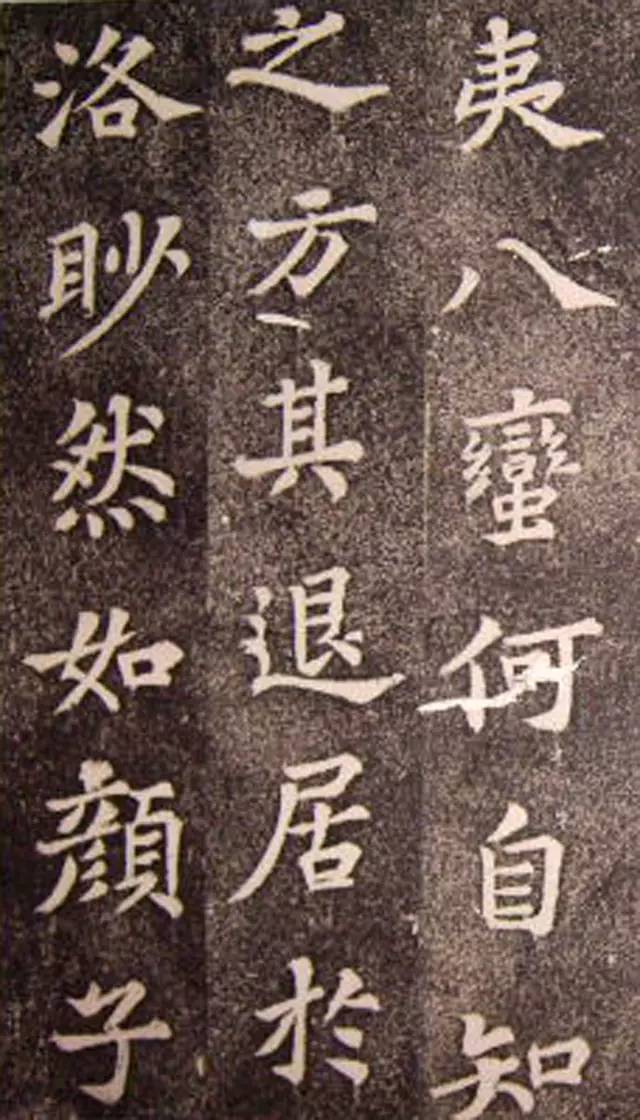 夷八蠻何自知
之方其退居於
洛眇然如顔子